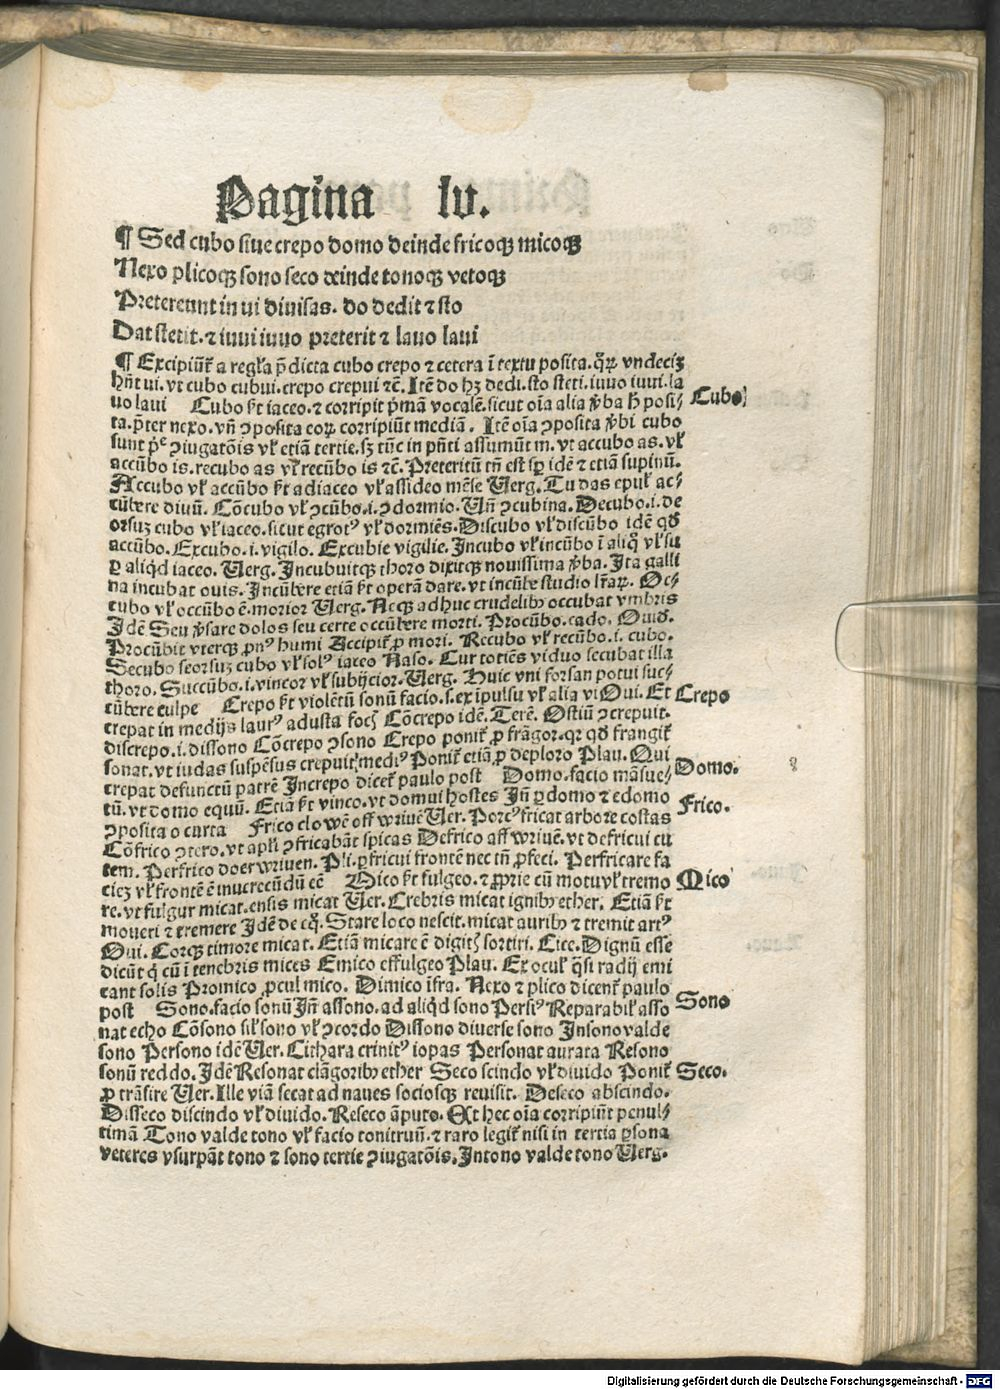 Pagina lv.
¶ Sed cubo siue crepo domo deinde fricoqꝫ micoqꝫ
Nexo plicoqꝫ sono seco deinde tonoqꝫ vetoqꝫ
Pretereunt in ui diuisas. do dedit ⁊ sto
Dat stetit. ⁊ iuui iuuo preterit ⁊ lauo laui
¶ Excipiūt̄ a regl̄a p̄dicta cubo crepo ⁊ cetera ī textu posita. qꝛ̄ vndeciꝫ
hn̄t ui. vt cubo cubui. crepo crepui ⁊c̄. Itē do hꝫ dedi. sto steti. iuuo iuui. la
uo laui Cubo s̄t iaceo. ⁊ corripit p̄mā vocalē. sicut oīa alia v̄ba h̄ posi⸗
Cubo
ta. p̄ter nexo. vn̄ ꝯposita eoꝝ corripiūt mediā. Itē oīa ꝯposita v̄bi cubo
sunt p̄e ꝯiugatōis vl̄ etiā tertie. sꝫ tūc in pn̄ti assumūt m. vt accubo as. vl̄
accūbo is. recubo as vl̄ recūbo is ⁊c̄. Preteritū tn̄ est sꝑ idē ⁊ etiā supinū.
Accubo vl̄ accūbo s̄t adiaceo vl̄ assideo mēse Verg. Tu das epul̄ ac⸗
cūbere diuū. Cōcubo vl̄ ꝯcūbo. i. ꝯdormio. Vn̄ ꝯcubina. Decubo. i. de
orsuꝫ cubo vl̄ iaceo. sicut egrotꝰ vl̄ dormiēs. Discubo vl̄ discūbo idē qd̄
accūbo. Excubo. i. vigilo. Excubie vigilie. Incubo vl̄ incūbo ī aliq̄ vl̄ su
ꝑ aliqd̄ iaceo. Verg. Incubuitqꝫ thoro dixitqꝫ nouissima v̄ba. Ita galli
na incubat ouis. Incūbere etiā s̄t operā dare. vt incūbe studio lr̄aꝝ. Oc⸗
cubo vl̄ occūbo ē. morior Verg. Necqꝫ adhuc crudelibꝰ occubat vmbris
Idē Seu v̄sare dolos seu certe occūbere morti. Procūbo. cado. Ouid.
Procūbit vterqꝫ pn̄ꝰ humi Accipit̄ ꝓ mori. Recubo vl̄ recūbo. i. cubo.
Secubo seorsuꝫ cubo vl̄ solꝰ iaceo Naso. Cur totiēs viduo secubat illa
thoro. Succūbo. i. vincor vl̄ subijcior. Verg. Huic vni forsan potui suc⸗
cūbere culpe Crepo s̄t violētū sonū facio. s. ex īpulsu vl̄ alia vi Oui. Et
Crepo
crepat in medijs laurꝰ adusta foc̄ Cōcrepo idē. Terē. Ostiū ꝯcrepuit.
discrepo. i. dissono Cōcrepo ꝯsono Crepo ponit̄ ꝓ frāgor. qꝛ qd̄ frangit̄
sonat. vt iudas suspēsus crepuit mediꝰ Ponit̄ etiā ꝓ deploro Plau. Qui
crepat defunctū patrē Increpo dicet̄ paulo post Domo. facio māsue⸗
Domo.
tū. vt domo equū. Etiā s̄t vinco. vt domui hostes In̄ ꝑdomo ⁊ edomo
ꝯposita o curta Frico clowē off wriuē Ver. Porcꝰ fricat arbore costas
Frico.
Cōfrico ꝯtero. vt apl̄i ꝯfricabāt spicas Defrico aff wriuē. vt defricui cu
tem. Perfrico doer wriuen. Pli. ꝑfricui frontē nec tn̄ ꝓfeci. Perfricare fa
cieꝫ vl̄ frontē ē inuerecūdū eē Mico s̄t fulgeo. ⁊ ꝓprie cū motu vl̄ tremo
Mico
re. vt fulgur micat. ensis micat Ver. Crebris micat ignibꝰ ether. Etiā s̄t
moueri ⁊ tremere Idē de eq̄. Stare loco nescit. micat auribꝰ ⁊ tremit artꝰ
Oui. Corqꝫ timore micat. Etiā micare ē digitꝭ sortiri. Cice. Dignū esse
dicūt q̄ cū ī tenebris mices Emico effulgeo Plau. Ex ocul̄ q̄si radij emi
cant solis Promico ꝓcul mico. Dimico īfra. Nexo ⁊ plico dicent̄ paulo
post Sono. facio sonū In̄ assono. ad aliqd̄ sono Persiꝰ Reparabil̄ asso
Sono
nat echo Cōsono sil̄ sono vl̄ ꝯcordo Dissono diuerse sono Insono valde
sono Persono idē Ver. Cithara crinitꝰ iopas Personat aurata Resono
sonū reddo. Idē Resonat clāgoribꝰ ether Seco scindo vl̄ diuido Ponit̄
Seco.
ꝓ trāsire Ver. Ille viā secat ad naues sociosqꝫ reuisit. Deseco abscindo.
Disseco discindo vl̄ diuido. Reseco āputo. Et hec oīa corripiūt penul⸗
timā Tono valde tono vl̄ facio tonitruū. ⁊ raro legit̄ nisi in tertia ꝑsona
veteres vsurpāt tono ⁊ sono tertie ꝯiugatōis. Intono valde tono Verg.
Digitalisierung gefördert durch die Deutsche Forschungsgemeinschaft - DFG